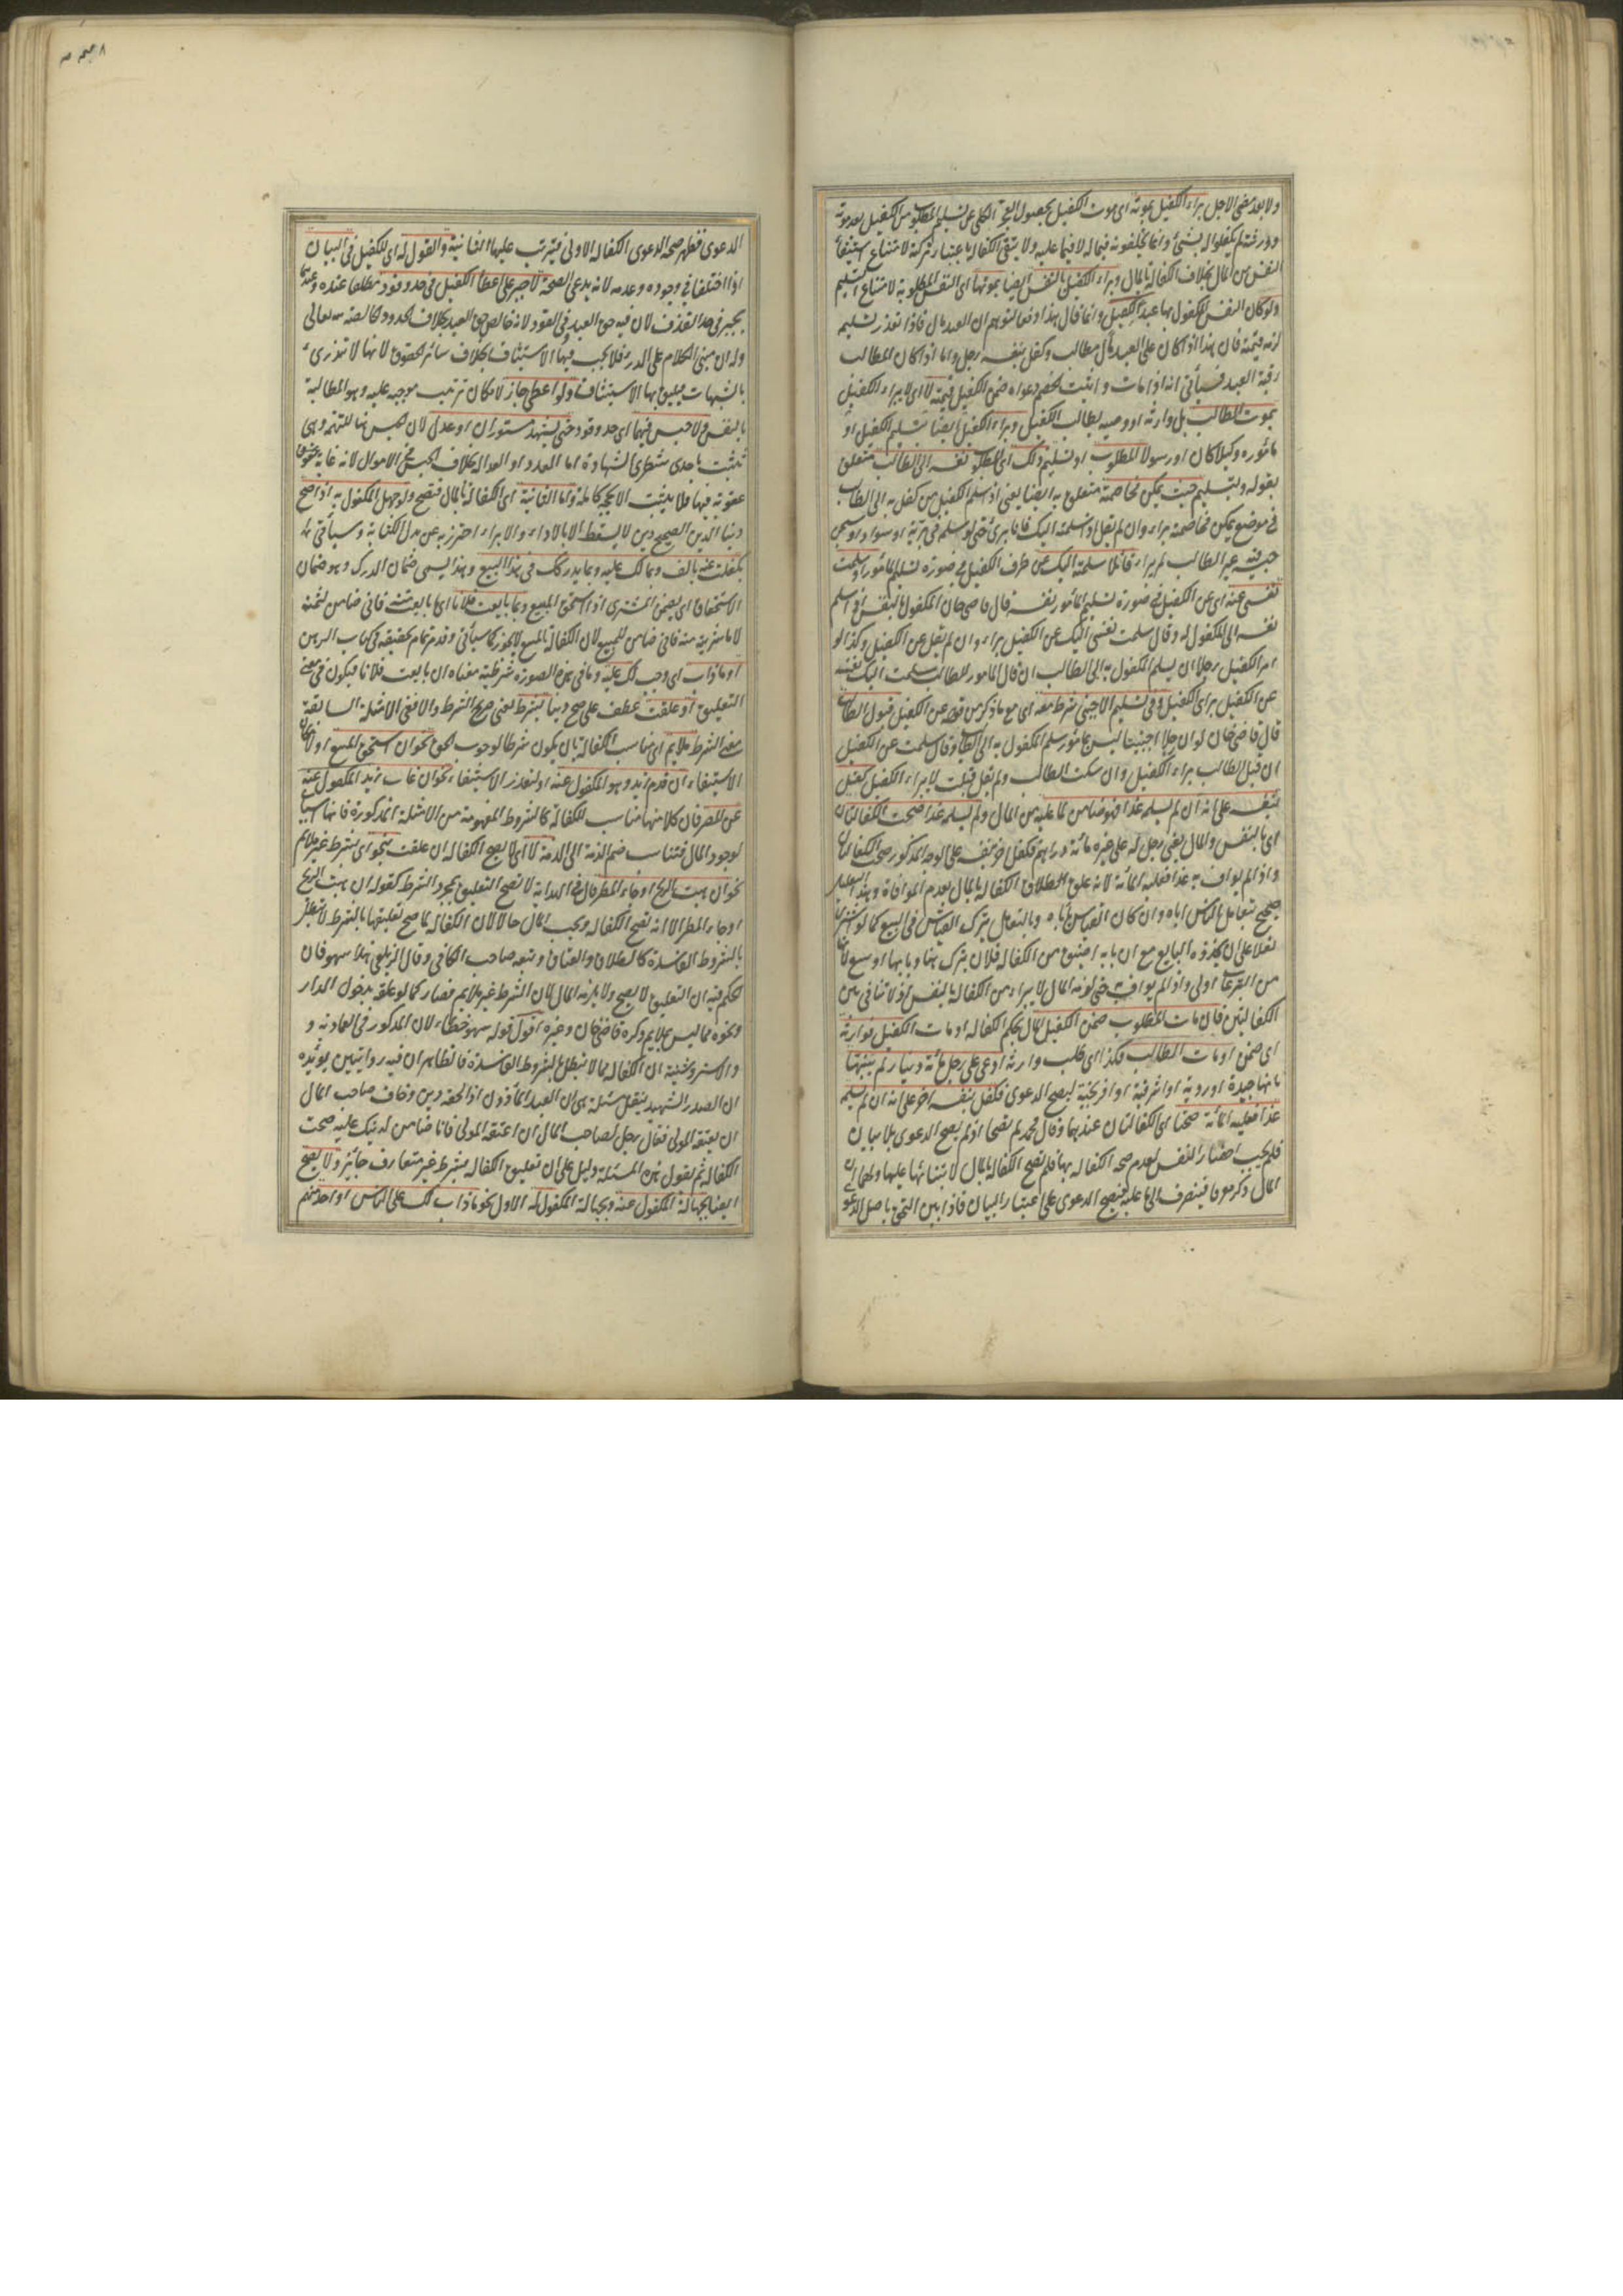 ولا بعد مضى الاجل براء الكفيل بموته اى موت الكفيل بحصول العجز الكلى عن تسليم المطلوب من الكفيل بعد موته
وورثته لم يكفلوا له بشئ وانما يخلفونه فيما له لا فيما عليه ولا يبقى الكفالة باعتبار تركته لامتناع استيفاء
النفس من المال بخلاف الكفالة بالمال وبراء الكفيل بالنفس ايضا بموتها اى النفس المطلوبة لامتناع التسليم
ولو كان النفس المكفول بها عبدا الكفيل وانما قال هذا دفعا لتوهم ان العبد مال فاذا تعذر تسليم
لزمه قيمته فان هذا اذا كان على العبد مال مطالب وكفل بنفسه رجل واما اذا كان المطالب
رقبة العبد فسيأتى انه اذا مات واثبت الخصم دعواه ضمن الكفيل قيمته لا اى لا يبراء الكفيل
بموت المطالب بل وارثه او وصيه يطالب الكفيل وبراء الكفيل ايضا بتسليم الكفيل او
مأموره وكيلا كان او رسولا المطلوب او تسليم ذلك اى المطلوب نفسه الى الطالب متعلق
بقوله وبتسليم حيث يمكن مخاصمته متعلق به ايضا يعنى اذا سلم الكفيل من كفل به الى الطالب
فى موضع يمكن مخاصمته براء وان لم يقل اذا سلمته اليك فانا برئ حتى لو سلم فى برية او سواد او سجن
حبسه غير الطالب لم يبراء قائلا سلمته اليك عن طرف الكفيل فى صورة تسليم المأمور او سلمت
نفسى عنه اى عن الكفيل فى صورة تسليم المأمور نفسه قال قاضى خان المكفول بالنفس اذا سلم
نفسه الى المكفول له وقال سلمت نفسى اليك عن الكفيل براء وان لم يقل عن الكفيل وكذا لو
امر الكفيل رجلا ان يسلم المكفول به الى الطالب ان قال المأمور للطالب سلمت اليك نفسه
عن الكفيل براى الكفيل وفى تسليم الاجنبى شرط معه اى مع ما ذكر من قوله عن الكفيل قبول الطالب
قال قاضى خان لو ان رجلا اجنبيا ليس بمأمور سلم المكفول به الى الطالب وقال سلمت عن الكفيل
ان قبل الطالب براء الكفيل وان سكت الطالب ولم يقل قبلت لا يبراء الكفيل كفيل
بنفسه على انه ان لم يسلمه غدا فهو ضامن لما عليه من المال ولم يسلمه غدا صحت الكفالتان
اى بالنفس والمال يعنى رجل له على غيره مائة دراهم فكفل اخر بنفسه على الوجه المذكور صحت الكفالتان
واذا لم يواف به غدا فعليه المائة لانه علق الكفالة بالمال بعدم الموافاة وهذا التعليق
صحيح بتعامل الناس اياه وان كان القياس يأباه وبالتعامل يترك القياس فى البيع كما لو اشترى
نعلا على ان يحذوه البايع مع ان بابه اضيق من الكفالة فلان يترك هنا وبابها اوسع لانها
من التبرعات اولى واذا لم يواف به حتى لزمه المال لا يبراء من الكفالة بالنفس اذ لا تنافى بين
الكفالتين فان مات المطلوب ضمن الكفيل المال بحكم الكفالة او مات الكفيل فوارثه
اى ضمن او مات الطالب فكذا اى طلب وارثه ادعى على رجل مائة دينار لم يبينها
بانها جيدة او ردية او اشرفية او افرنجية ليصح الدعوى فكفل بنفسه اخر على انه ان لم يسلمه
غدا فعليه المائة صحتا اى الكفالتان عندهما وقال محمد لم تصحا اذ لم يصح الدعوى بلا بيان
فلم يجب احضار النفس لعدم صحة الكفالة بها فلم تصح الكفالة بالمال لابتنائها عليها ولهما ان
المال ذكر معرفا فينصرف الى ما عليه فيصح الدعوى على اعتبار البيان فاذا بين التحق باصل الدعوى
صم ٨
الدعوى فظهر صحة الدعوى الكفالة الاولى فيترتب عليها الثانية والقول له اى للكفيل فى البيان
اذا اختلفا فى وجوده وعدمه لانه يدعى الصحة لا جبر على اعطاء الكفيل فى حد وقود مطلقا عنده وعندهما
يجبر فى حد القذف لان فيه حق العبد وفى القود لانه خالص حق العبد بخلاف الحدود الخالصة لله تعالى
وله ان مبنى الكلام على الدرء فلا يجب فيها الاستيثاق بخلاف سائر الحقوق لانها لا تندرئ
بالشبهات فيليق بها الاستيثاق ولو اعطى جاز لامكان ترتيب موجبه عليه وهو المطالبة
بالنفس ولا حبس فيهما اى حد وقود حتى يشهد مستوران او عدل لان الحبس هنا للتهمة وهى
تثبت باحدى شطرى الشهادة اما العدد او العدالة بخلاف الحبس فى الاموال لانه غاية عقوبة
عقوبة فيها فلا يثبت الا بحجة كاملة واما الثانية اى الكفالة بالمال فتصح ولو جهل المكفول به اذا صح
دينا الدين الصحيح دين لا يسقط الا بالاداء او الابراء احترز به عن بدل الكتابة وسيأتى
بكفلت عنه بالف وبما لك عليه وبما يدركك فى هذا البيع وهذا يسمى ضمان الدرك وهو ضمان
الاستحقاق اى يضمن المشترى اذا استحق المبيع وبما بايعت فلانا اى ما بايعت منه فانى ضامن لثمنه
لا ما شريته منه فانى ضامن للمبيع لان الكفالة بالمبيع لا يجوز كما سيأتى وقد مر تمام تحقيقه فى كتاب الرهن
او ما ذاب اى وجب لك عليه وما فى هذه الصورة شرطية معناه ان بايعت فلانا فيكون فى معنى
التعليق او علقت عطف على صح دينا بشرط يعنى صريح الشرط والا ففى الامثلة السابقة
معنى الشرط ملايم اى مناسب للكفالة بان يكون شرطا لوجوب الحق نحو ان استحق المبيع او لامكان
الاستيفاء ان قدم زيد وهو المكفول عنه او لتعذر الاستيفاء نحو ان غاب زيد المكفول عنه
عن المصر فان كلا منها مناسب للكفالة كالشروط المفهومة من الامثلة المذكورة فانها اسباب
لوجود المال فتناسب ضم الذمة الى الذمة لا اى لا يصح الكفالة ان علقت بنحو اى بشرط غير ملايم
نحو ان هبت الريح او جاء المطر قال فى الهداية لا تصح التعليق بمجرد الشرط كقوله ان هبت الريح
او جاء المطر الا انه تصح الكفالة ويجب المال حالا لان الكفالة لما صح تعليقها بالشرط لا تبطل
بالشروط الفاسدة كالطلاق والعتاق وتبعه صاحب الكافى وقال الزيلعى هذا سهو فان
الحكم فيه ان التعليق لا يصح ولا يلزمه المال لان الشرط غير ملايم فصار كما لو علقه بدخول الدار
ونحوه مما ليس بملايم ذكره قاضى خان وغيره اقول قوله سهو خطاء لان المذكور فى العمادية و
والاستروشنية ان الكفالة مما لا تبطل بالشروط الفاسدة فالظاهر ان فيه روايتين يؤيده
ان الصدر الشهيد ينقل مسئلة هى ان العبد المأذون اذا لحقه دين وخاف صاحب المال
ان يعتقه المولى فقال رجل لصاحب المال ان اعتقه المولى فانا ضامن لدينك عليه صحت
الكفالة ثم يقول هذه المسئلة دليل على ان تعليق الكفالة بشرط غير متعارف جائز ولا يصح
ايضا بجهالة المكفول عنه وبجهالة المكفول له الاول نحو ما ذاب لك على الناس او احد منهم